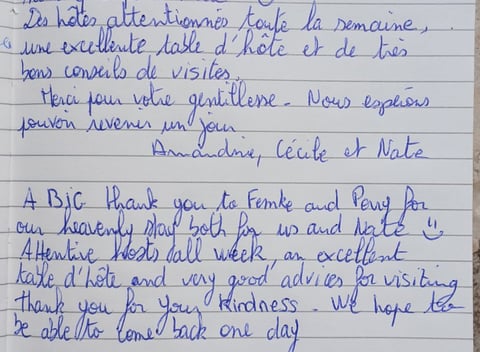 Des hôtes attentionnés toute la semaine,
une excellente table d'hôte et de très
bons conseils de visites.
Merci pour votre gentillesse. Nous espérons
pouvoir revenir un jour
Amandine, Cécile et Nate
A BIG thank you to Femke and Peny for
our heavenly stay both for us and Nate
Attentive hosts all week, an excellent
table d'hôte and very good advices for visiting
thank you for your kindness. We hope to
be able to come back one day